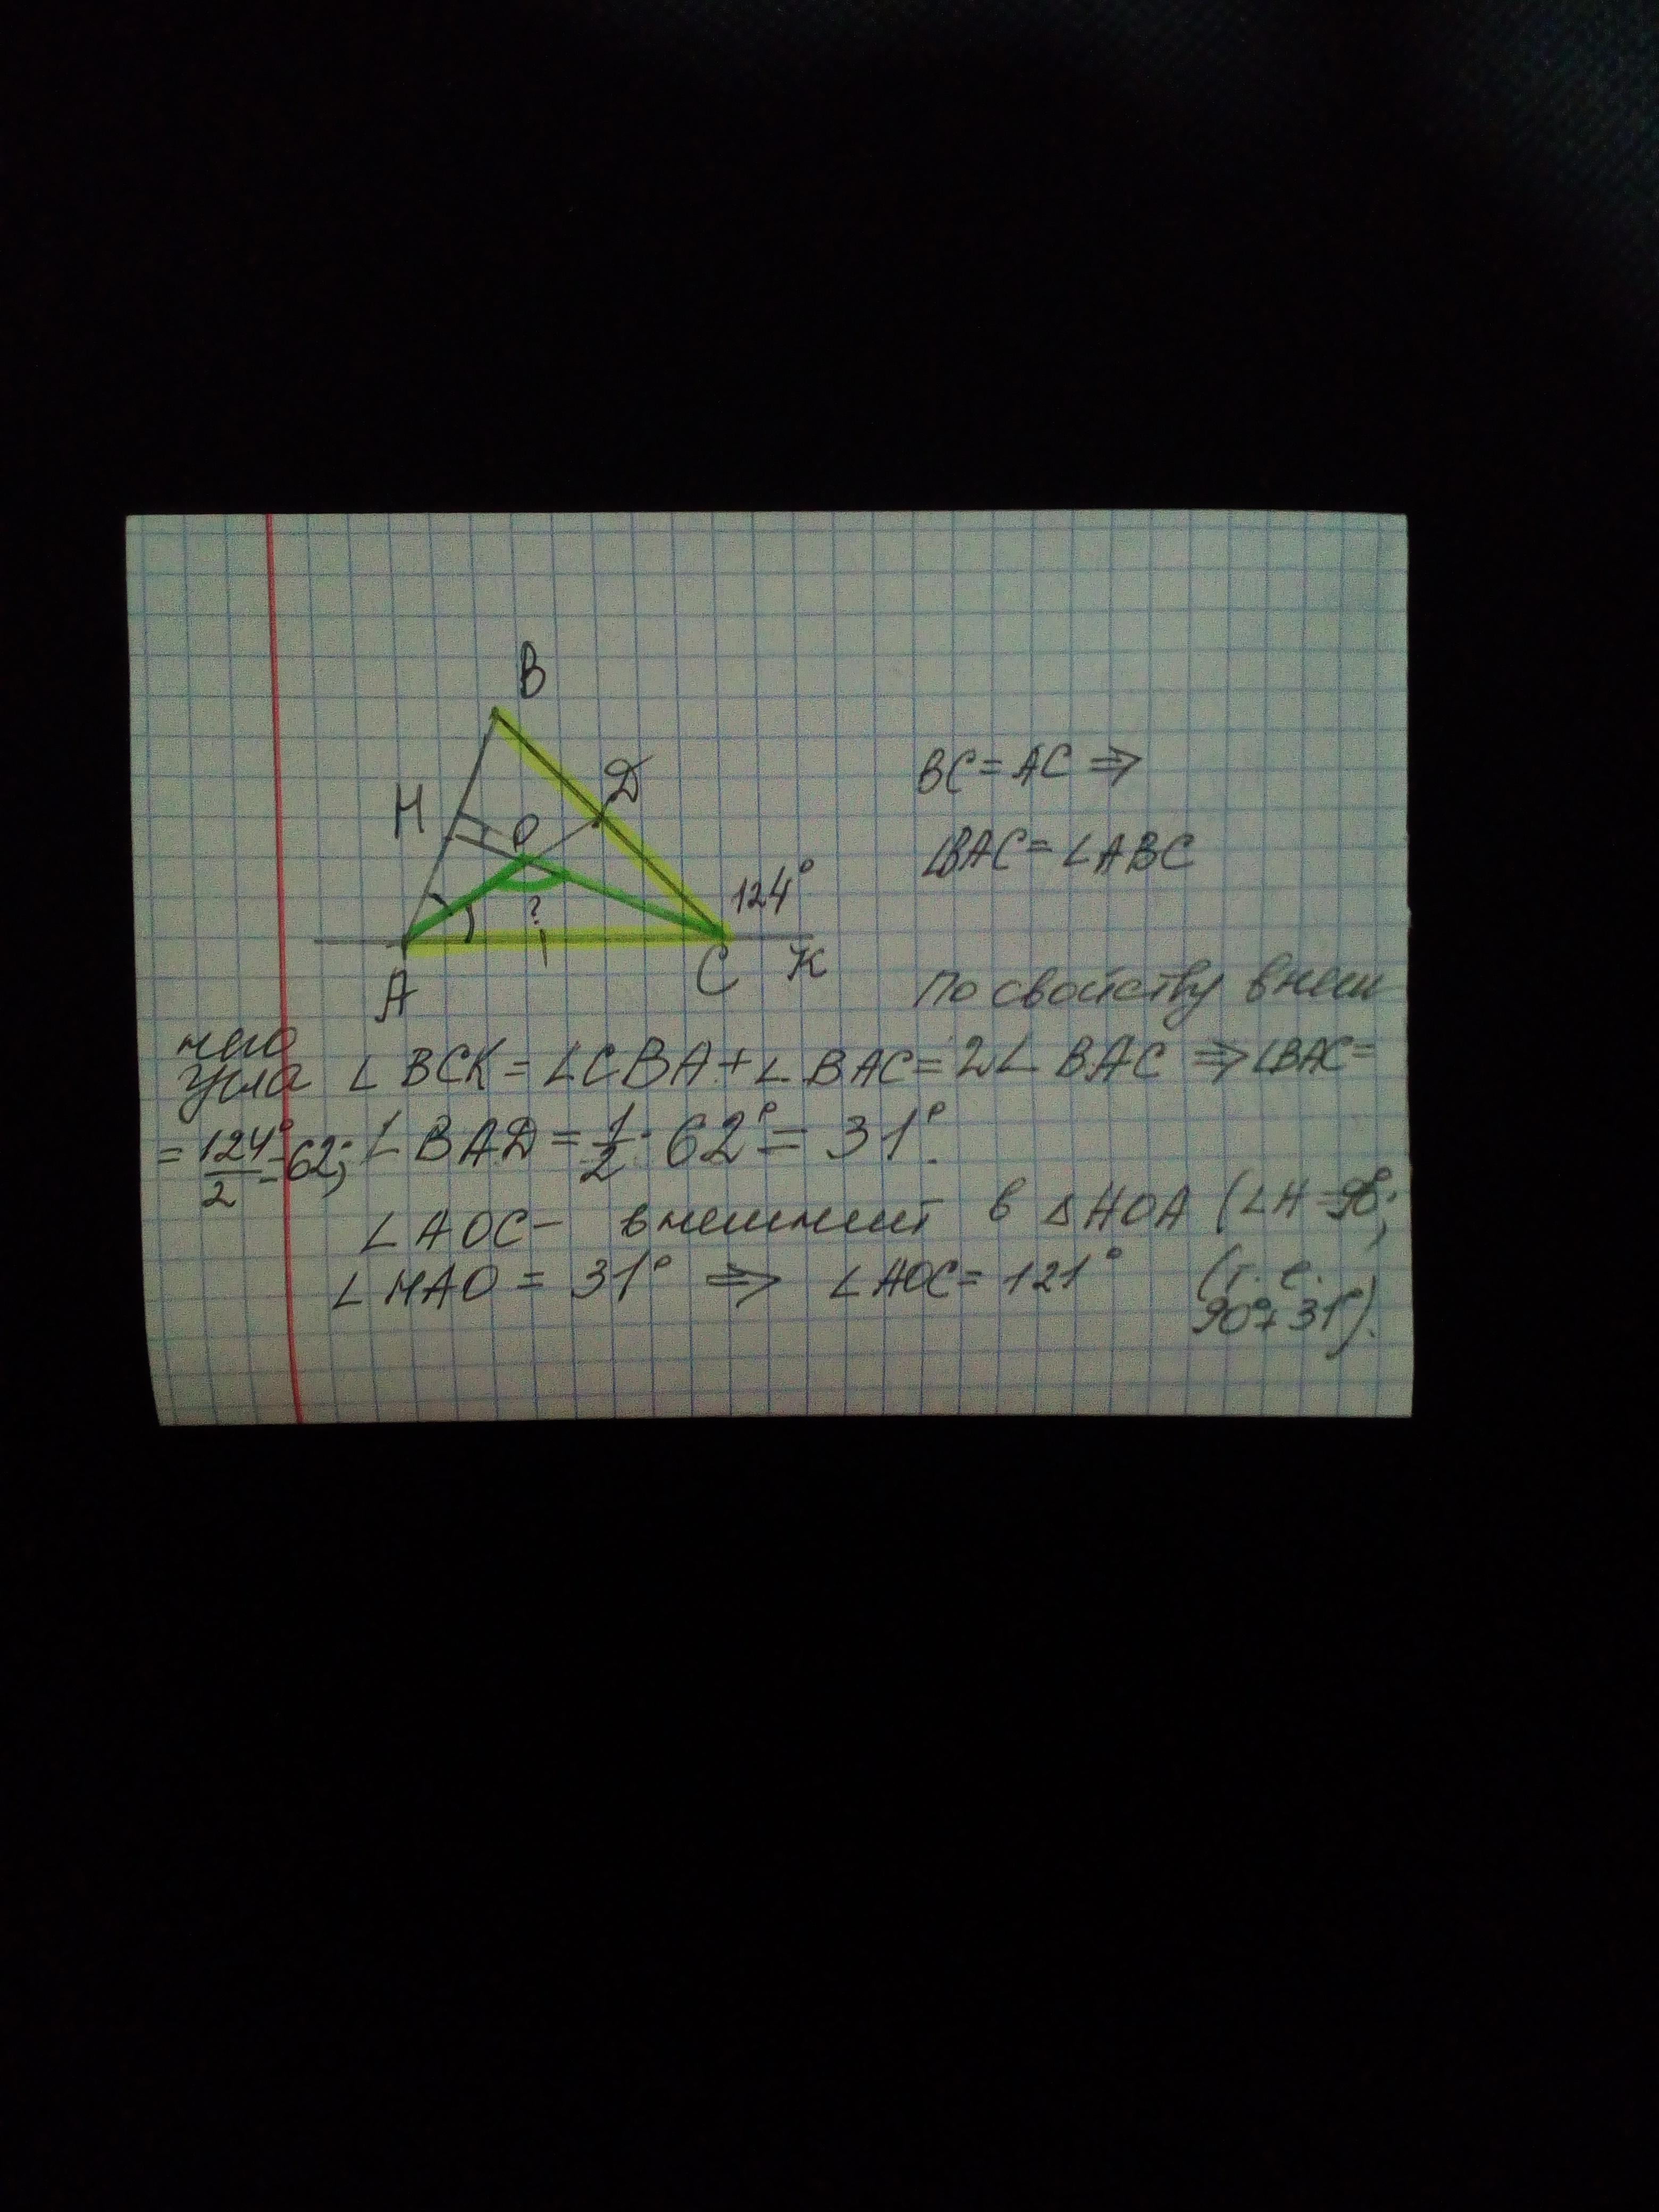 B
H
D
O
124°
?
A
C
K
BC = AC ⇒
∠BAC = ∠ABC
По свойству внеш
него
угла ∠BCK = ∠CBA + ∠BAC = 2∠BAC ⇒ ∠BAC =
= 124°/2 = 62; ∠BAD = 1/2 · 62° = 31°.
∠AOC – внешний в △HOA (∠H = 90°;
∠HAO = 31° ⇒ ∠AOC = 121° (т. е.
90° + 31°).